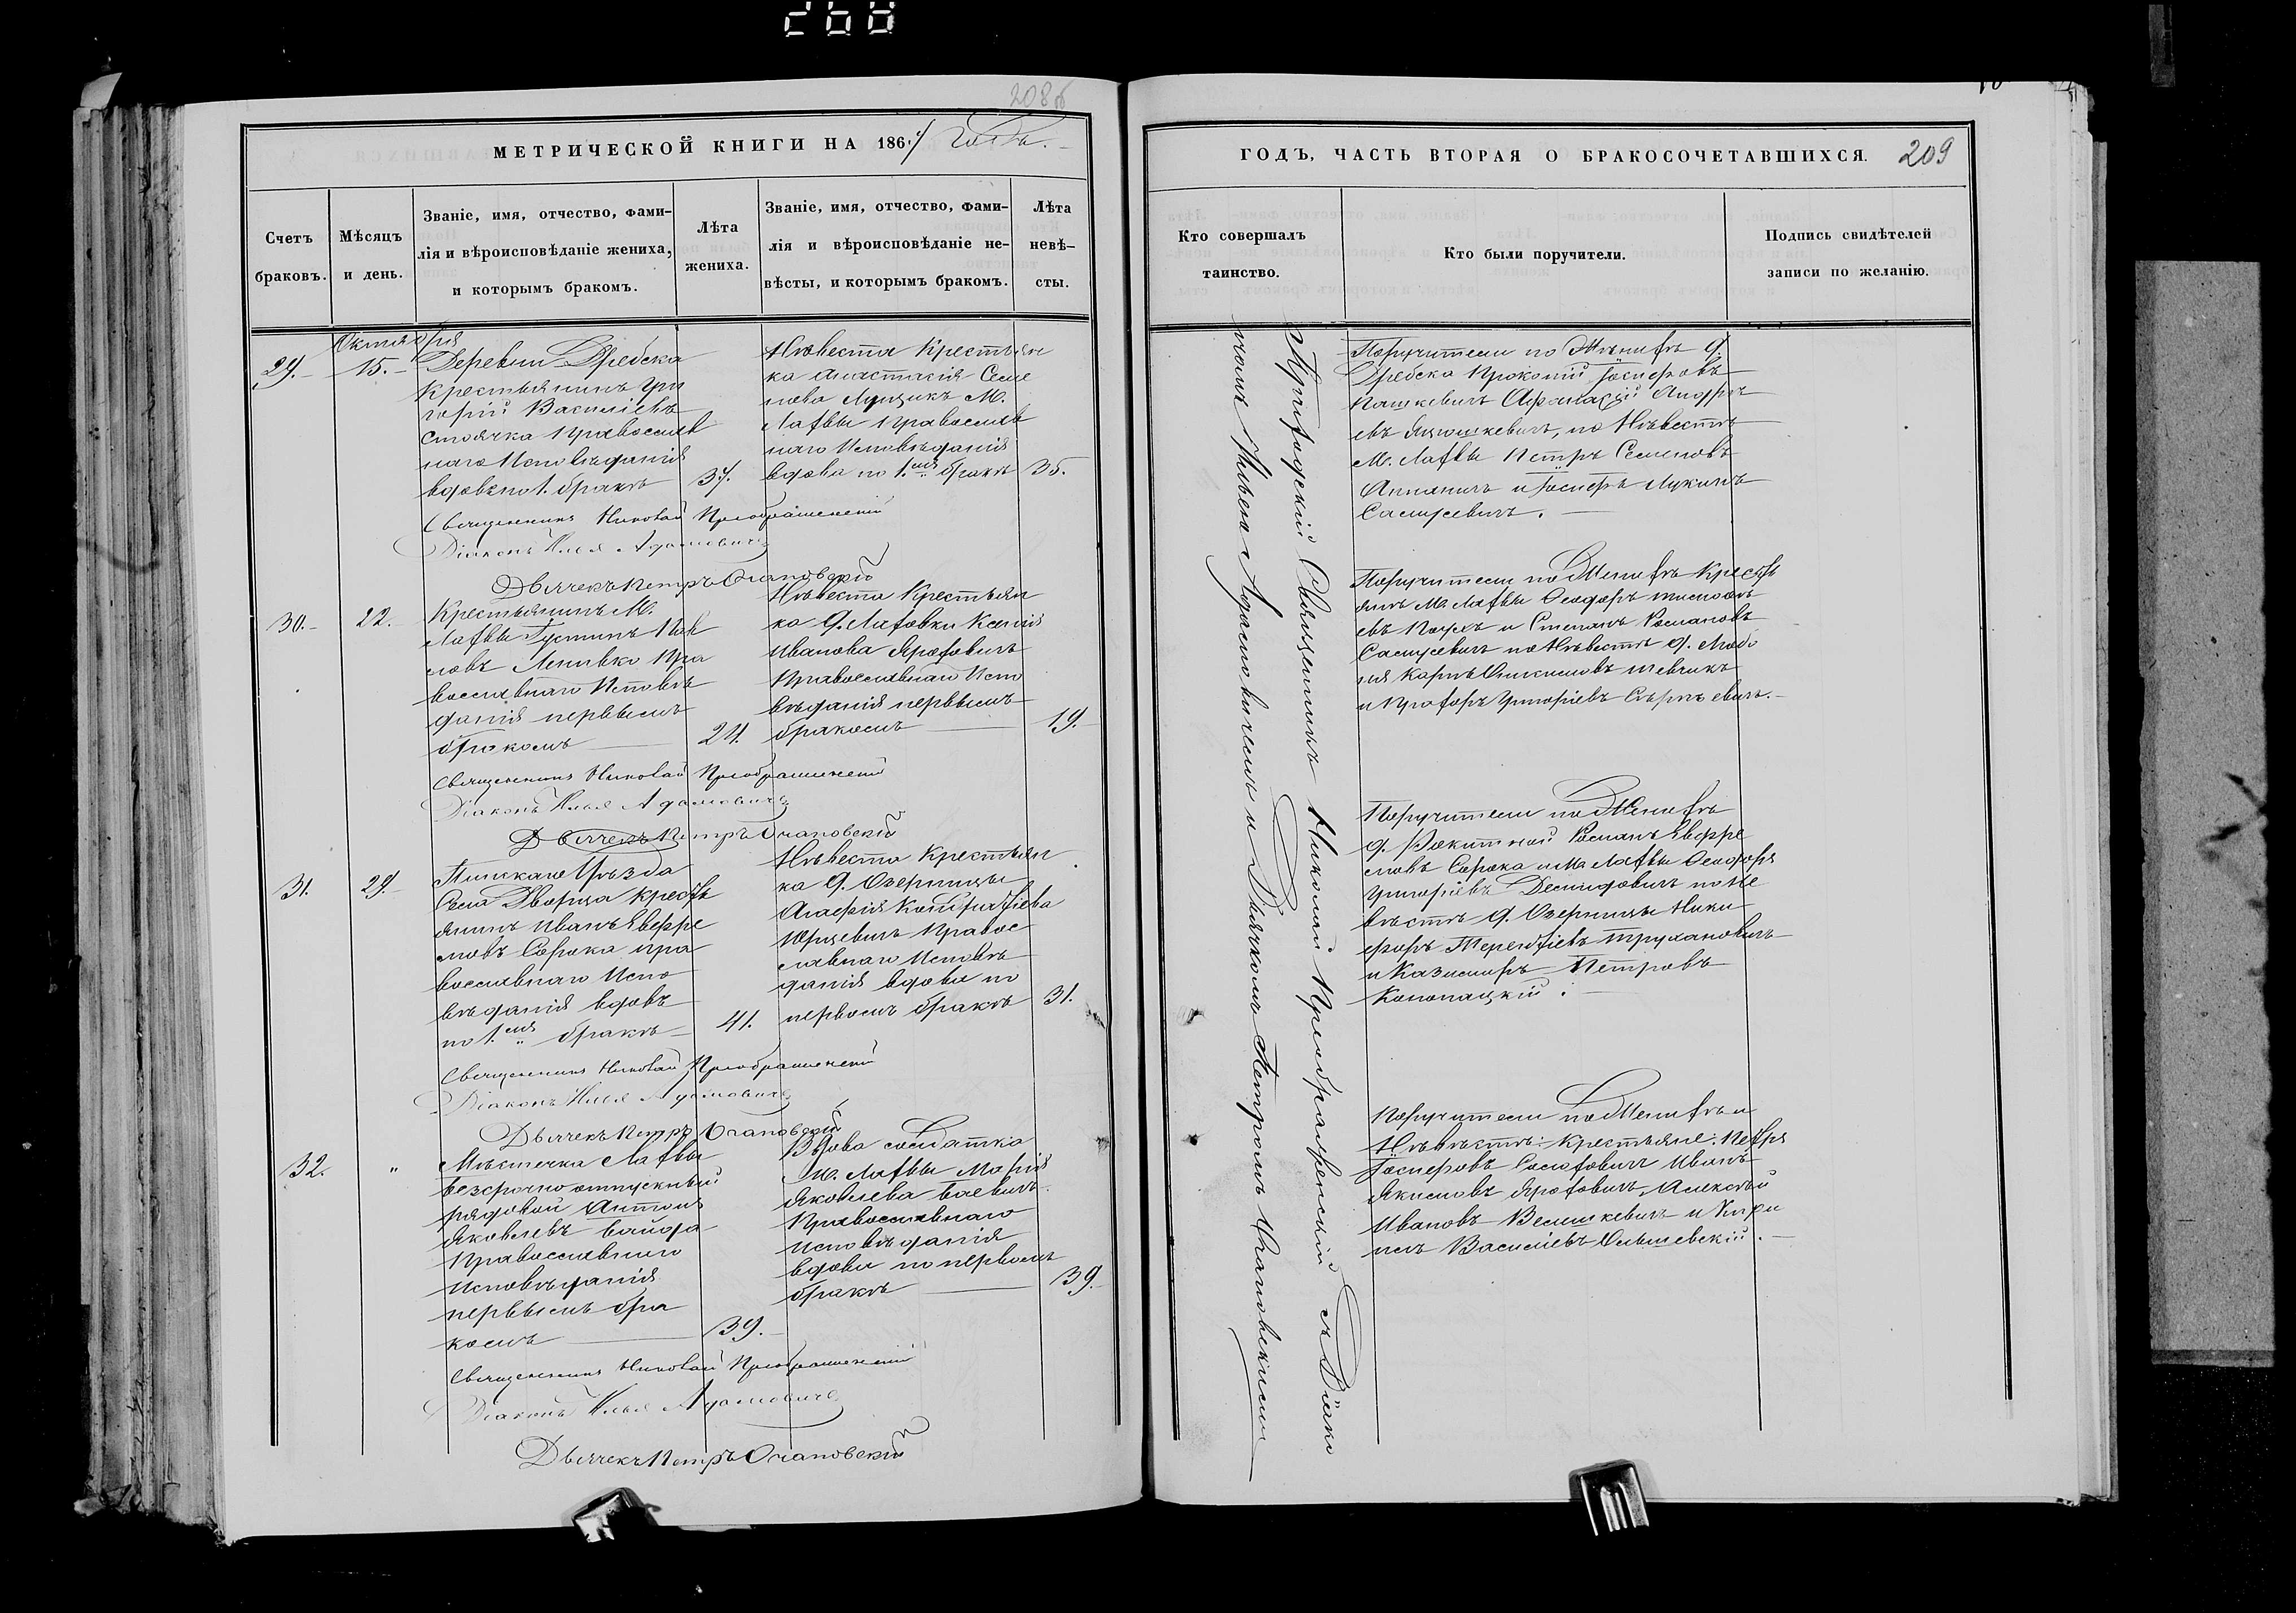 208б
МЕТРИЧЕСКОЙ КНИГИ НА 186
Счетъ браковъ.
Мѣсяцъ и день.
Званіе, имя, отчество, фами-
лія и вѣроисповѣданіе жениха,
и которымъ бракомъ.
Лѣта жениха.
Званіе, имя, отчество, фами-
лія и вѣроисповѣданіе не-
вѣсты, и которымъ бракомъ.
Лѣта невѣ-
сты.
29.
Октября
15.
Деревни
Крестьянинъ Гри
горій Васильевъ
православ
наго Исповѣданія
вдовъ по 1. бракѣ
37.
Невѣста Крестьян
ка Анастасія Семе
нова М.
Лахвы православ
наго Исповѣданія
вдова по 1.мъ бракѣ
35.
Священникъ Николай Преображенскій
Діаконъ Илья Адамовичъ
Дьячекъ Петръ Очаповскій
30.
22.
Крестьянинъ М.
Лахвы Густинъ Пав
ловъ пра
вославнаго Исповѣ
данія первымъ
бракомъ
24.
Невѣста Крестьян
ка д. Лаховки
Иванова Яроховичъ
Православнаго Испо
вѣданія первымъ
бракомъ
19.
Священникъ Николай Преображенскій
Діаконъ Илья Адамовичъ
Дьячекъ Петръ Очаповскій
31.
29.
Пинскаго Уѣзда
Села Дворца Кресть
янинъ Иванъ Евфре
мовъ Сорока пра
вославнаго Испо
вѣданія вдовъ
по 1.мъ бракѣ
41.
Невѣста Крестьян
ка д. Озерницы
Агафія
Юрцевичъ Правос
лавнаго Исповѣ
данія вдова по
первомъ бракѣ
31.
Священникъ Николай Преображенскій
Діаконъ Илья Адамовичъ
Дьячекъ Петръ Очаповскій
32.
"
Мѣстечка Лахвы
безсрочно отпускный
рядовой Антонъ
Яковлевъ Байда
Православнаго
Исповѣданія
первымъ бра
комъ
39.
Вдова солдатка
М. Лахвы Марія
Яковлева Баевичъ
Православнаго
Исповѣданія
вдова по первомъ
бракѣ
39.
Священникъ Николай Преображенскій
Діаконъ Илья Адамовичъ
Дьячекъ Петръ Очаповскій
ГОДЪ, ЧАСТЬ ВТОРАЯ О БРАКОСОЧЕТАВШИХСЯ.
209
Кто совершалъ
таинство.
Кто были поручители.
Подпись свидѣтелей
записи по желанію.
Приходскій Священникъ Николай Преображенскій съ Діако
номъ Ильею Адамовичемъ и Дьячкомъ Петромъ Очаповскимъ
Поручители по Женихѣ д.
Прокопій Іосифовъ
Пашкевичъ Афанасій Андре
евъ по Невѣстѣ
М. Лахвы Петръ Семеновъ
и Іосифъ Лукинъ
Самусевичъ.
Поручители по Женихѣ Кресть
янѣ М. Лахвы Феодоръ
евъ и Степанъ Романовъ
Самусевичъ по Невѣстѣ д.
Шевчикъ
и Григоріевъ
Поручители по Женихѣ
д. Романъ Евфре
мовъ Сорока и М. Лахвы Феодоръ
Григоріевъ Демидовичъ по Не
вѣстѣ д. Озерницы Ники
форъ Терентіевъ Трухановичъ
и Казимиръ Петровъ
Конопацкій.
Поручители по Женихѣ и
Невѣстѣ: Крестьяне: Петръ
Іосифовъ Иванъ
Якимовъ Ярохововичъ, Алексѣй
Ивановъ Велешкевичъ и Кири
лъ Васильевъ Ольшевскій.